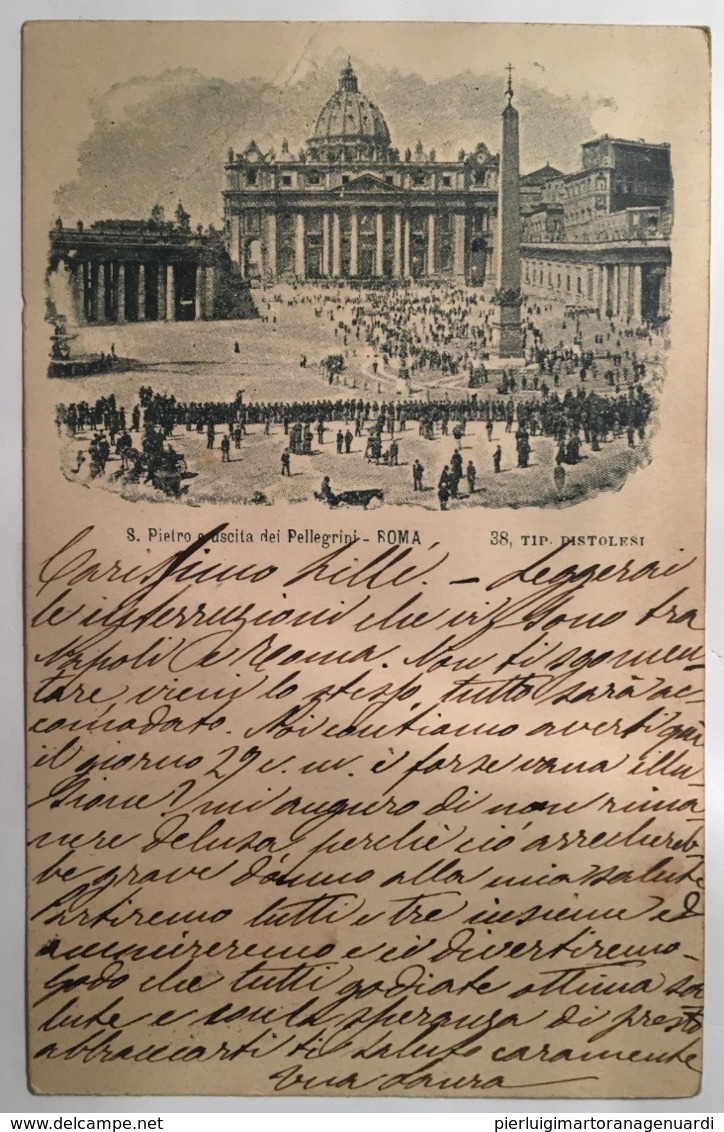 S. Pietro e uscita dei Pellegrini - ROMA 38, TIP. PISTOLESI
Carissimo Lillì. - Leggerai
le interruzioni che vi sono tra
Napoli e Roma. Non ti sgomen-
tare, vieni lo stesso, tutto sarà ac-
comodato. Noi contiamo averti qui
il giorno 27 c. m. è forse vana illu-
sione? mi auguro di non rima
nere delusa, perchè ciò arrechereb
be grave danno alla mia salute
Partiremo tutti e tre insieme ed
ammireremo e ci divertiremo -
Godo che tutti godiate ottima sa
lute e con la speranza di presto
abbracciarti ti saluto caramente
tua Laura
delcampe.net
pierluigimartoranagenuardi